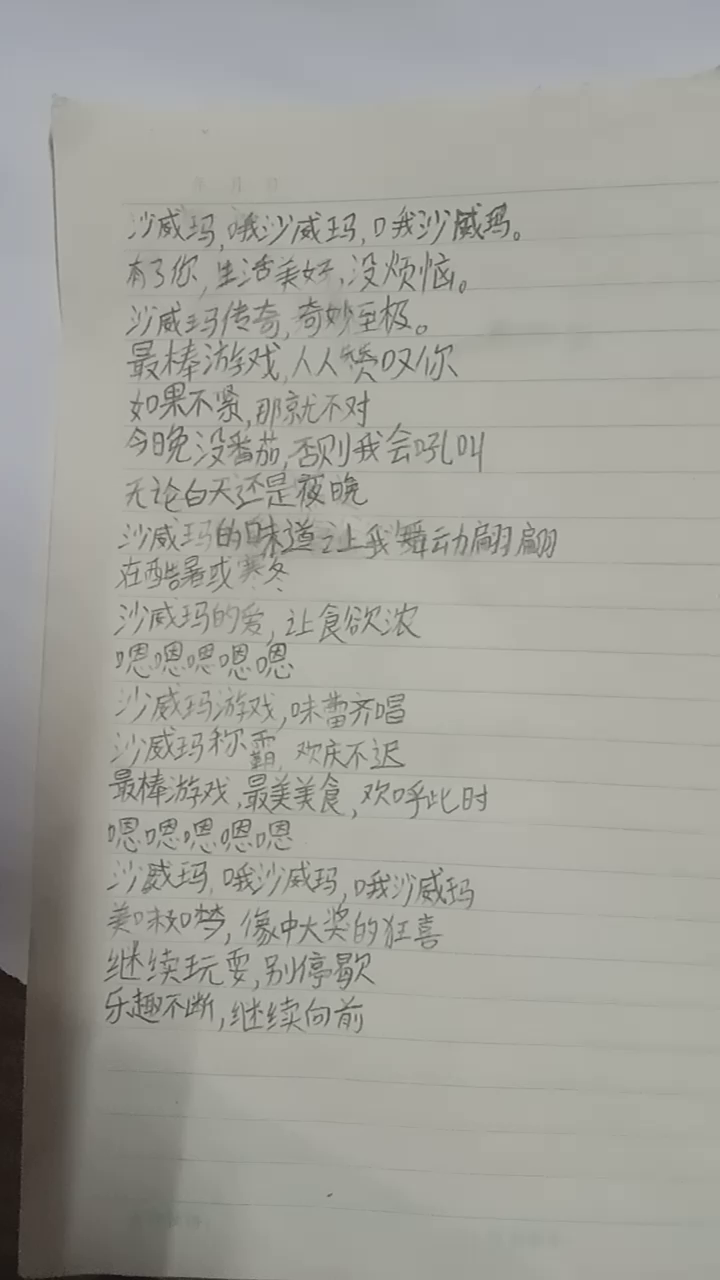 沙威玛,哦沙威玛,哦沙威玛。
有了你,生活美好、没烦恼。
沙威玛传奇,奇妙至极。
最棒游戏,人人赞叹你
如果不紧,那就不对
今晚没番茄,否则我会吼叫
无论白天还是夜晚
沙威玛的味道让我舞动翩翩
在酷暑或寒冬
沙威玛的爱,让食欲浓
嗯嗯嗯嗯嗯
沙威玛游戏,味蕾齐唱
沙威玛称霸,欢庆不迟
最棒游戏,最美美食,欢呼此时
嗯嗯嗯嗯嗯
沙威玛,哦沙威玛,哦沙威玛
美味如梦,像中大奖的狂喜
继续玩耍,别停歇
乐趣不断,继续向前